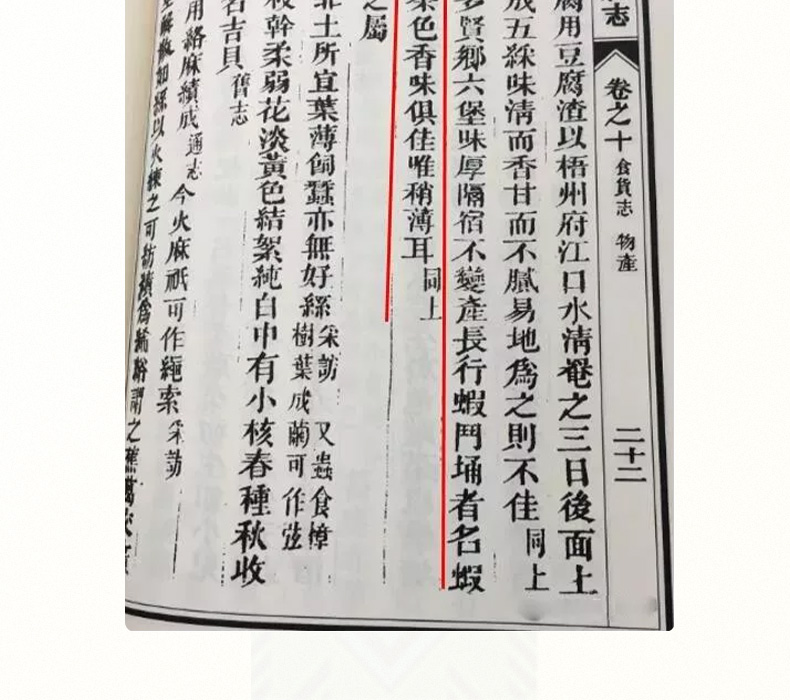 志
卷之十 食貨志 物產
二十二
腐用豆腐渣以梧州府江口水清罨之三日後面土
成五綵味清而香甘而不膩易地爲之則不佳同上
多賢鄉六堡味厚隔宿不變產長行蝦鬥埇者名蝦
茶色香味俱佳唯稍薄耳同上
之屬
非土所宜葉薄飼蠶亦無好絲采訪
樹葉成繭可作弦 又蟲食樟
枝幹柔弱花淡黃色結絮純白中有小核春種秋收
名吉貝舊志
用絡麻績成通志今火麻祇可作繩索采訪
解散如絲以火煉之可紡績爲絺綌謂之蕉葛